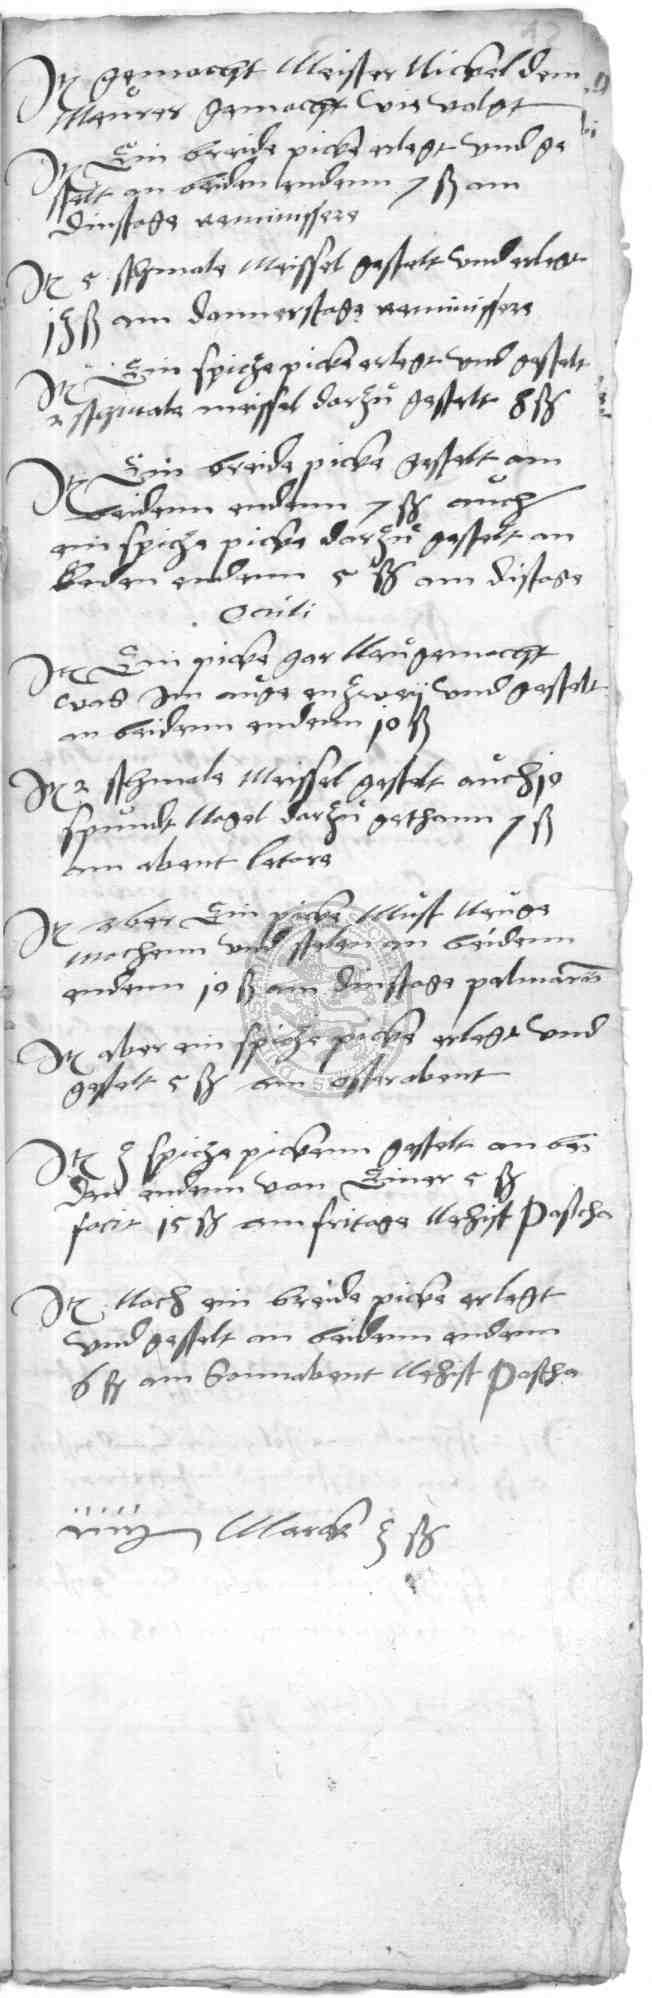 Jt gemacht Meister Nickel dem
Meurer gemacht wie volgt
Jt Ein breide picke erlegt und ge
stelt an beiden endenn 7 ß am
dinstage reminissere
Jt 5 schmale Meissel gestelt und erlegt
13 ß am donnerstage reminissere
Jt Ein spicze picke erlegt und gestelt
2 schmale meissel darzu gestelt 8 ß
Jt Ein breide picke gestelt am
beidenn endenn 7 ß auch
ein spicze picke darzu gestelt an
beden endenn 5 ß am distage
Oculi
Jt Ein picke gar Neu gemacht
was Im auge enzwey und gestelt
an beidenn endenn 10 ß
Jt 2 schmale Meissel gestelt auch 10
spundt Nagel darzu gethann 7 ß
am abent letare
Jt aber Ein picke Must Neuge
machenn und stelen an beidenn
endenn 10 ß am dinstage palmarum
Jt aber ein spicze picke erlegt und
gestelt 5 ß am osterabent
Jt 3 spicze pickenn gestelt an bei
den endenn von Einer 5 ß
facit 15 ß am fritage Nehist Pascha
Jt Noch ein breide picke erlegt
und gestelt an beidenn endenn
6 ß am Sonnabent Nehist Pascha
Marck 3 ß